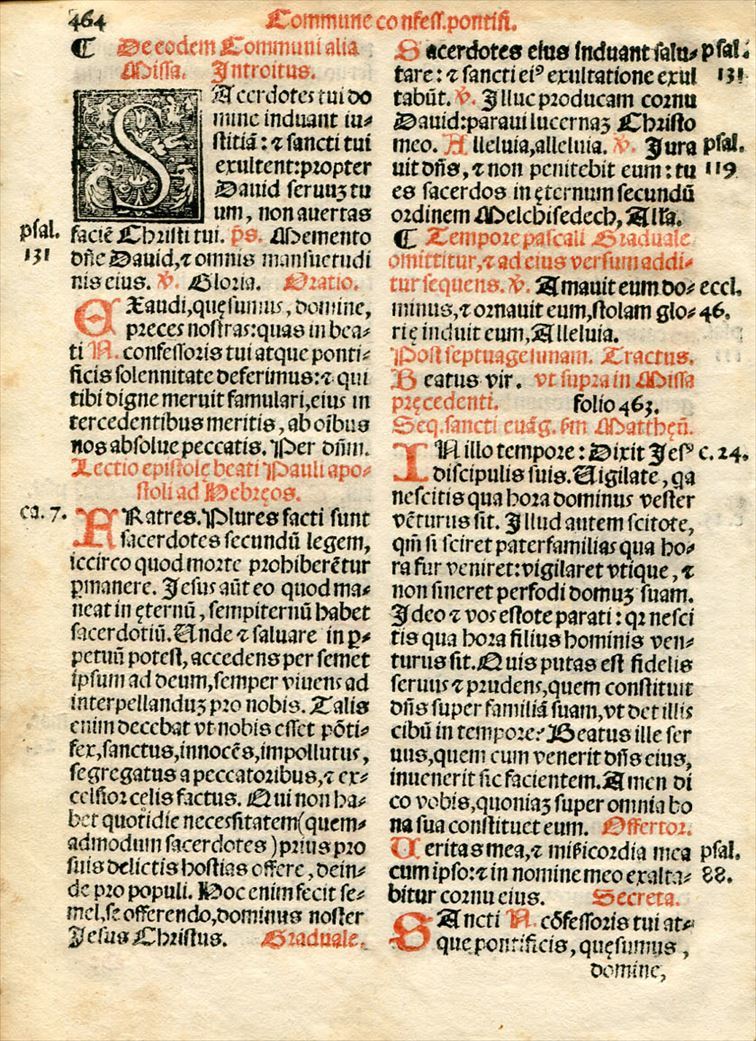 464
Commune confess. pontifi.
¶ De eodem Communi alia
Missa. Introitus.
SAcerdotes tui do
mine induant iu-
stitiã: ⁊ sancti tui
exultent: propter
Dauid seruuʒ tu
um, non auertas
psal. 131
faciẽ Christi tui. p̃s. Memento
dñe Dauid, ⁊ omnis mansuetudi
nis eius. ℣. Gloria. Oratio.
EXaudi, quęsumus, domine,
preces nostras: quas in bea-
ti N. confessoris tui atque ponti-
ficis solennitate deferimus: ⁊ qui
tibi digne meruit famulari, eius in
tercedentibus meritis, ab oĩbus
nos absolue peccatis. Per dñm.
Lectio epistolę beati Pauli apo-
stoli ad Hebręos.
ca. 7.
FRatres. Plures facti sunt
sacerdotes secundũ legem,
iccirco quod morte prohiberẽtur
ꝑmanere. Jesus aũt eo quod ma-
neat in ęternũ, sempiternũ habet
sacerdotiũ. Unde ⁊ saluare in ꝑ-
petuũ potest, accedens per semet
ipsum ad deum, semper viuens ad
interpellanduʒ pro nobis. Talis
enim decebat vt nobis esset põti-
fex, sanctus, innocẽs, impollutus,
segregatus a peccatoribus, ⁊ ex-
celsior cęlis factus. Qui non ha-
bet quotidie necessitatem (quem-
admodum sacerdotes) prius pro
suis delictis hostias offere, dein-
de pro populi. Hoc enim fecit se-
mel, se offerendo, dominus noster
Jesus Christus. Graduale.
Sacerdotes eius induant salu-
psal. 131
tare: ⁊ sancti eiꝰ exultatione exul
tabũt. ℣. Illuc producam cornu
Dauid: paraui lucernaʒ Christo
meo. Alleluia, alleluia. ℣. Jura
psal. 119
uit dñs, ⁊ non penitebit eum: tu
es sacerdos in ęternum secundũ
ordinem Melchisedech, Alľa.
¶ Tempore pascali Graduale
omittitur, ⁊ ad eius versum addi-
tur sequens. ℣. Amauit eum do-
eccl. 46.
minus, ⁊ ornauit eum, stolam glo-
rię induit eum, Alleluia.
Post septuagesimam. Tractus.
Beatus vir. vt supra in Missa
pręcedenti. folio 463.
Seq. sancti euãg. sm Matthęũ.
IN illo tempore: Dixit Jesꝰ
c. 24.
discipulis suis. Uigilate, qa
nescitis qua hora dominus vester
vẽturus sit. Illud autem scitote,
qm̃ si sciret paterfamilias qua ho-
ra fur veniret: vigilaret vtique, ⁊
non sineret perfodi domuʒ suam.
Ideo ⁊ vos estote parati: qꝛ nesci
tis qua hora filius hominis ven-
turus sit. Quis putas est fidelis
seruus ⁊ prudens, quem constituit
dñs super familiã suam, vt det illis
cibũ in tempore? Beatus ille ser
uus, quem cum venerit dñs eius,
inuenerit sic facientem. Amen di
co vobis, quoniaʒ super omnia bo
na sua constituet eum. Offertor.
Ueritas mea, ⁊ mis̃icordia mea
psal. 88.
cum ipso: ⁊ in nomine meo exalta-
bitur cornu eius. Secreta.
SAncti N. cõfessoris tui at-
que pontificis, quęsumus,
domine,